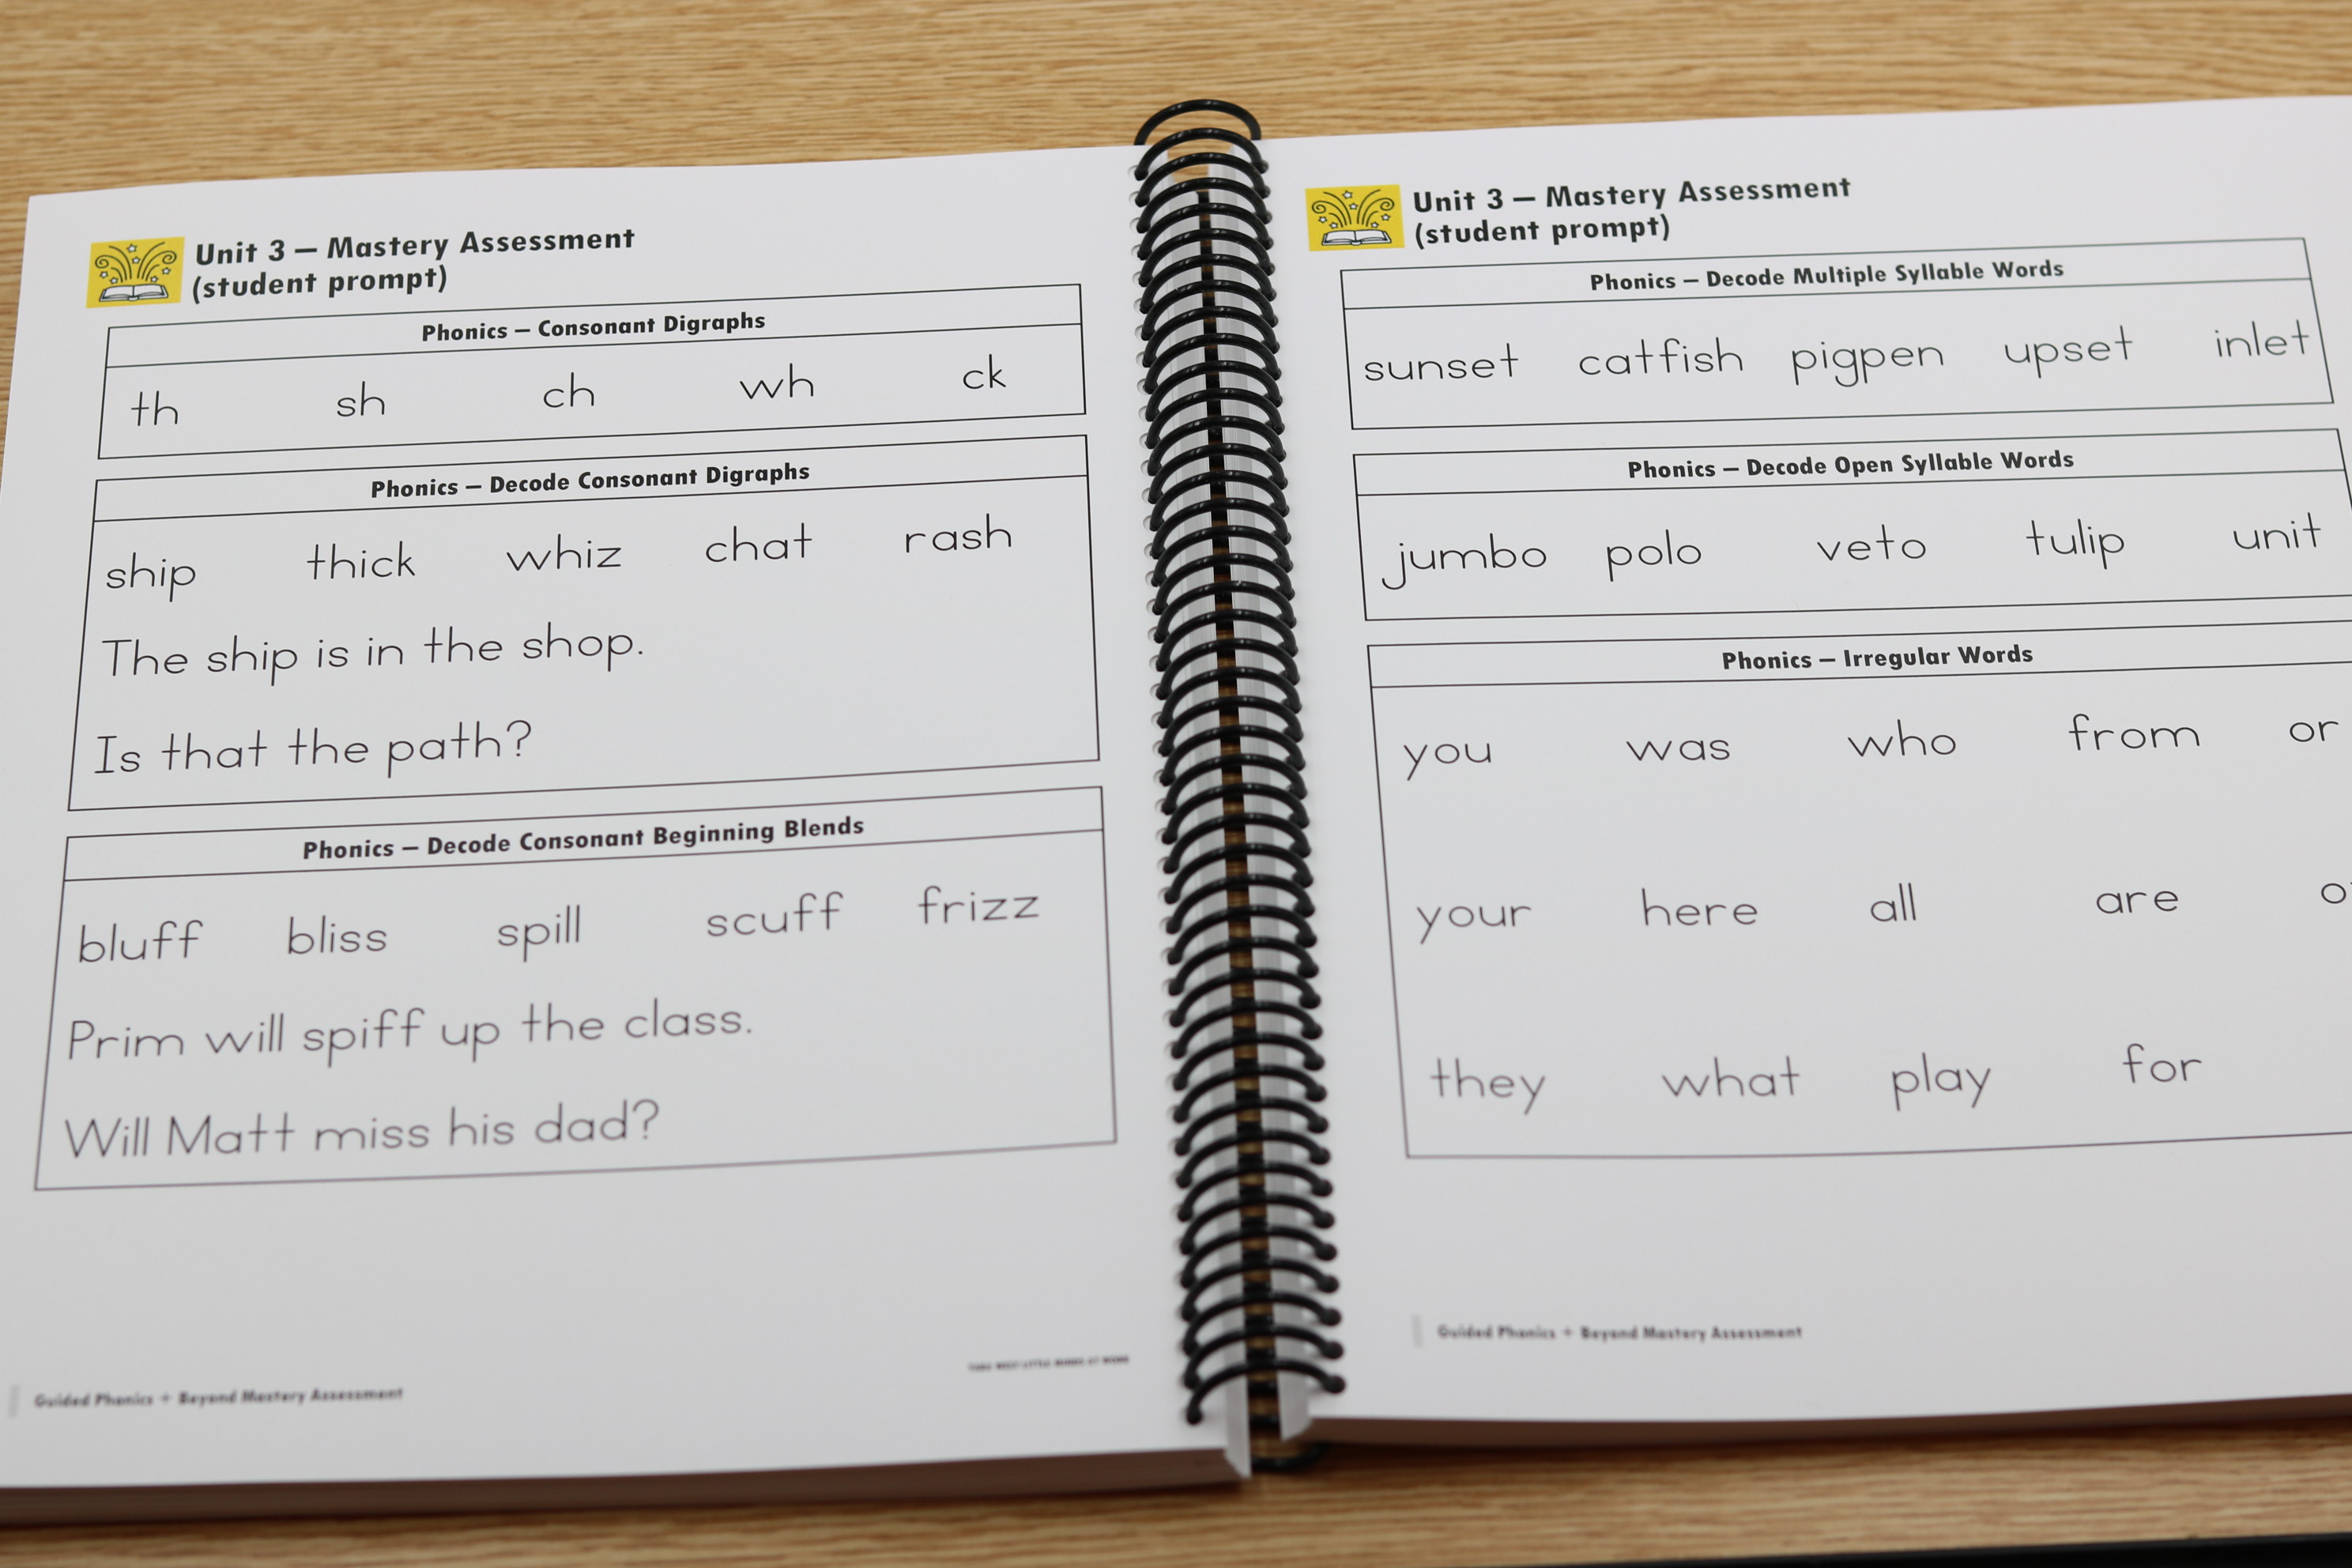 Unit 3 — Mastery Assessment
(student prompt)
Phonics — Consonant Digraphs
th sh ch wh ck
Phonics — Decode Consonant Digraphs
ship thick whiz chat rash
The ship is in the shop.
Is that the path?
Phonics — Decode Consonant Beginning Blends
bluff bliss spill scuff frizz
Prim will spiff up the class.
Will Matt miss his dad?
Guided Phonics + Beyond Mastery Assessment
Unit 3 — Mastery Assessment
(student prompt)
Phonics — Decode Multiple Syllable Words
sunset catfish pigpen upset inlet
Phonics — Decode Open Syllable Words
jumbo polo veto tulip unit
Phonics — Irregular Words
you was who from or
your here all are
they what play for
Guided Phonics + Beyond Mastery Assessment